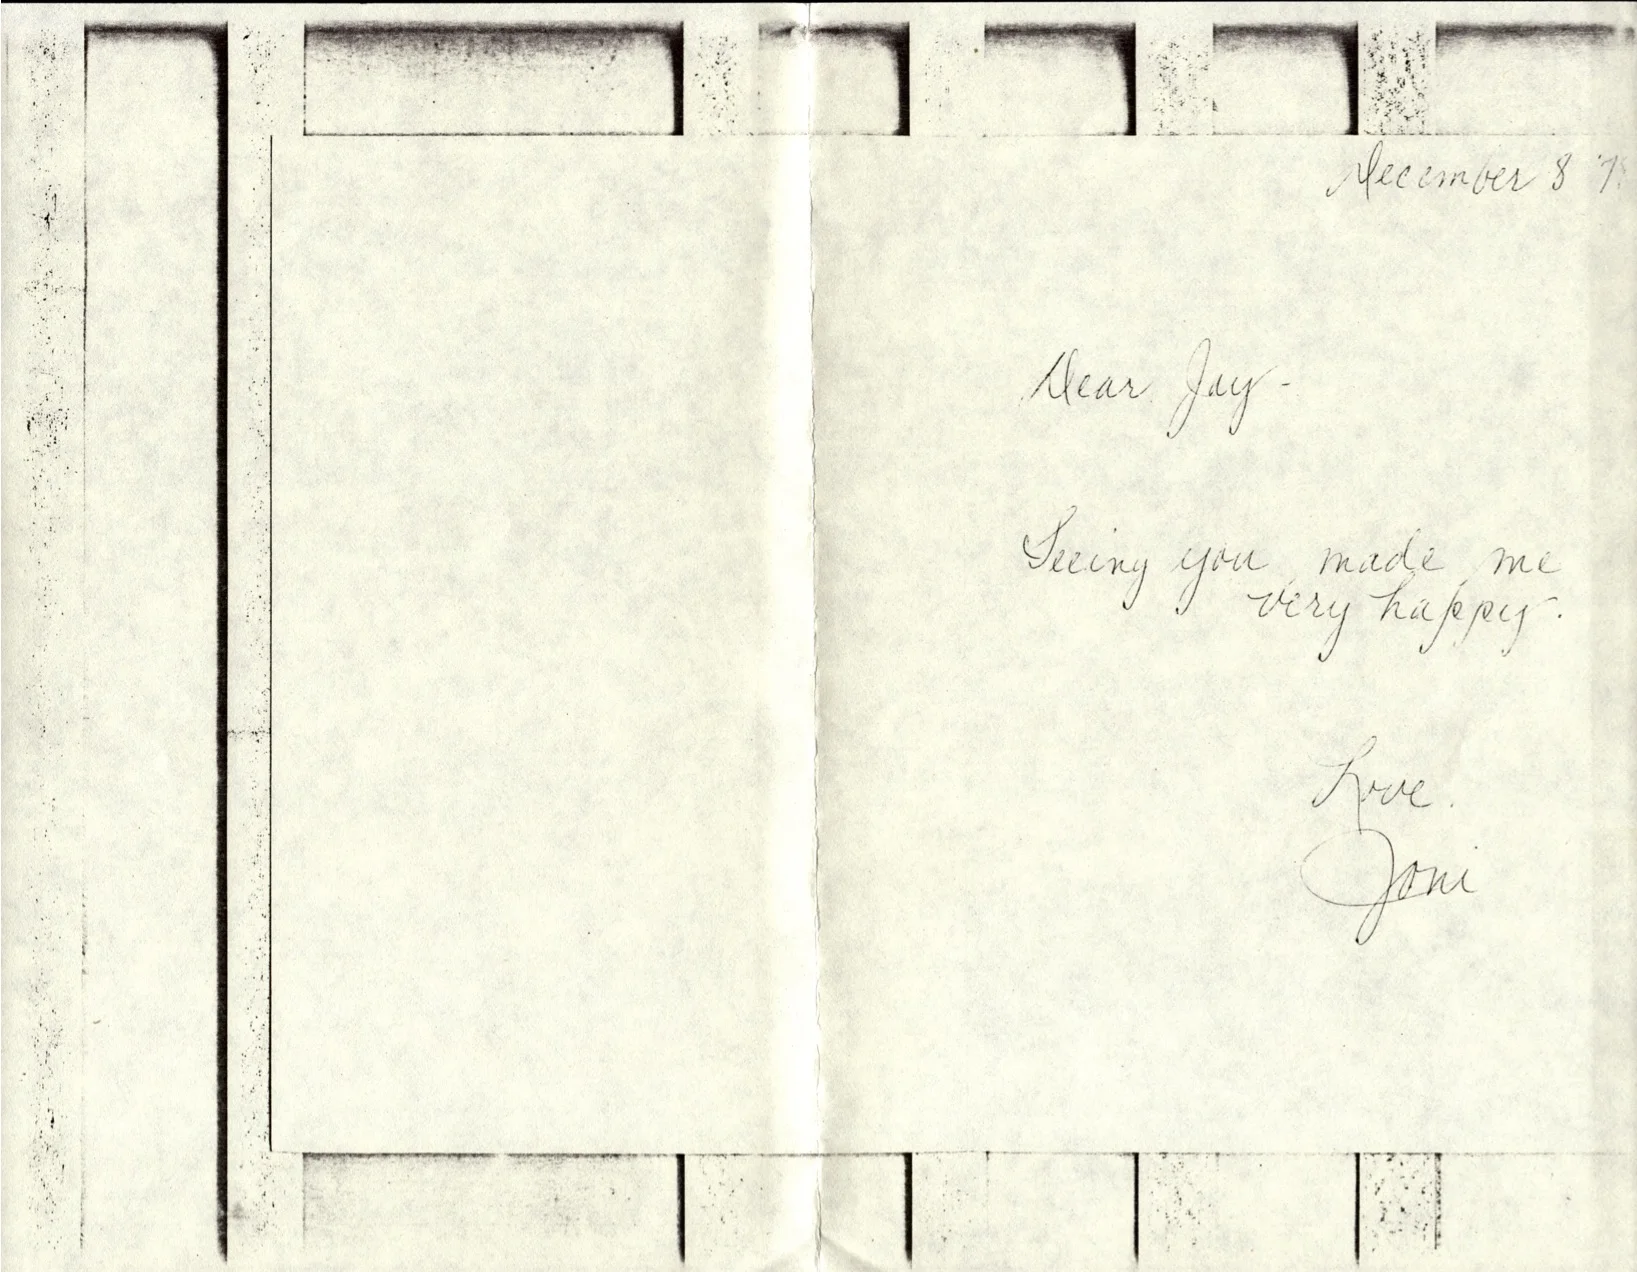 December 8 '7
Dear Jay -
Seeing you made me
very happy.
Love,
Joni